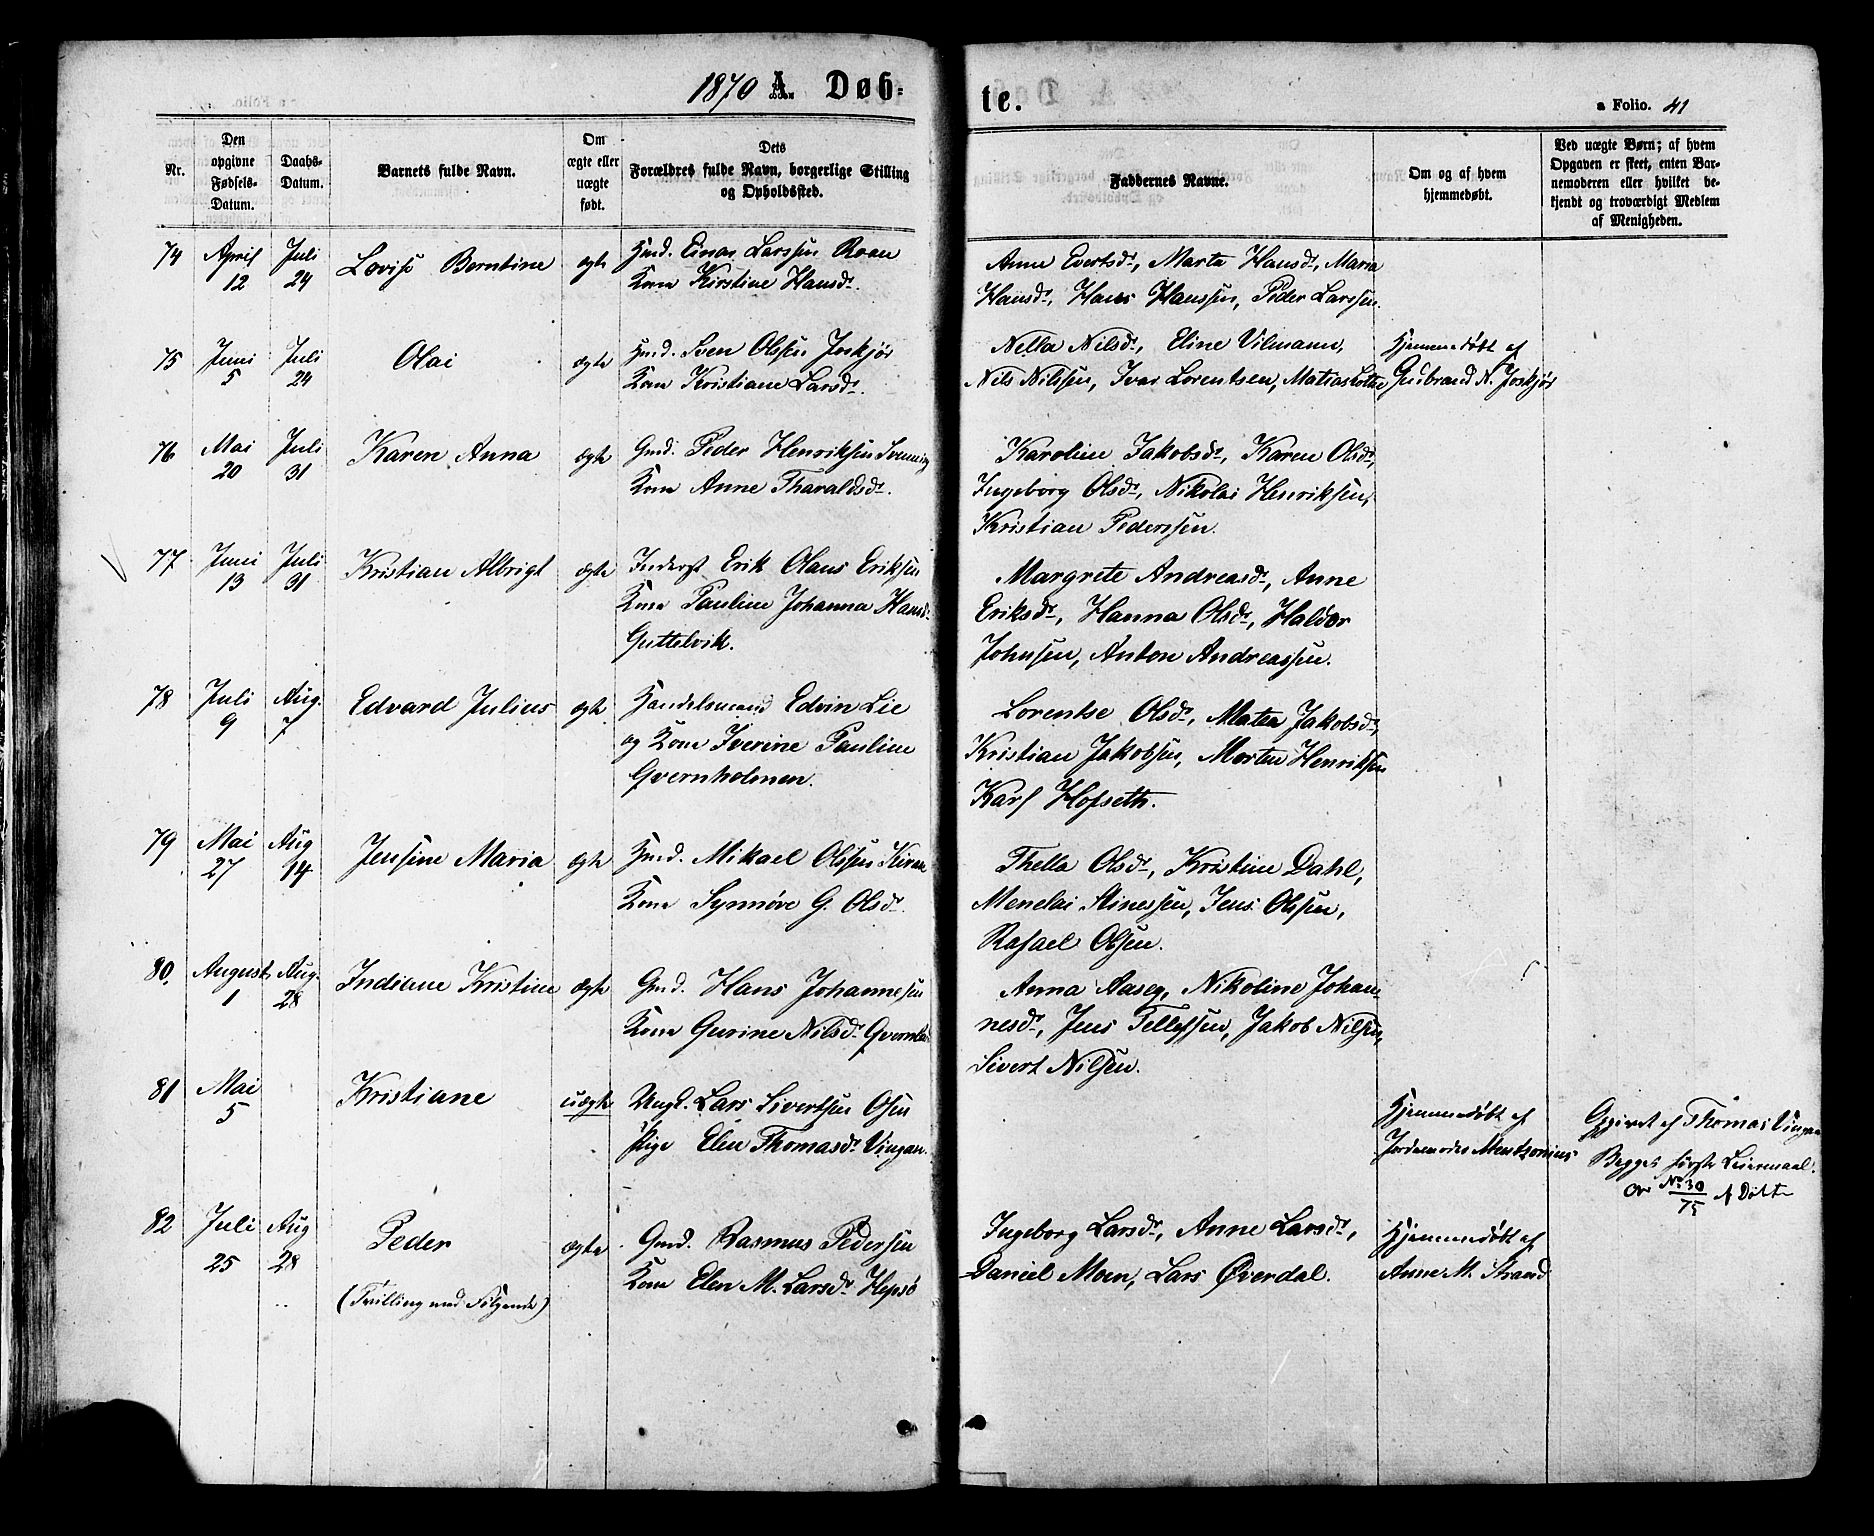 1870 A. Døb-
te.
a Folio. 41
Nr.
Den opgivne Fødsels-Datum.
Daabs-Datum.
Barnets fulde Navn.
Om ægte eller uægte født.
Dets Forældres fulde Navn, borgerlige Stilling og Opholdssted.
Faddernes Navne.
Om og af hvem hjemmedøbt.
Ved uægte Børn; af hvem Opgaven er skeet, enten Barnemoderen eller hvilket bekjendt og troværdigt Medlem af Menigheden.
74 April 12 Juli 24 Lovise Berntine ægte Gmd. Einar Larssen Roan
Kone Kirstine Hansdr.
Anne Evertsdr, Marta Hansdr, Maria
Hansdr, Hans Hanssen, Peder Larssen.
75 Juni 5 Juli 24 Olai ægte Hmd. Sven Olssen Joskjør
Kone Kristiane Larsdr.
Nella Nilsdr, Eline Vilmann,
Nils Nilssen, Ivar Lorentsen, Matias
Hjemmedøbt af
Gudbrand N. Joskjør
76 Mai 20 Juli 31 Karen Anna ægte Gmd. Peder Henriksen Svenning
Kone Anne Tharaldsdr.
Karoline Jakobsdr, Karen Olsdr,
Ingeborg Olsdr, Nikolai Henriksen,
Kristian Pederssen.
77 Juni 13 Juli 31 Kristian Albrigt ægte Inderst Erik Olaus Eriksen
Kone Pauline Johanna Hansdr
Guttelvik.
Margrete Andreasdr, Anne
Eriksdr, Hanna Olsdr, Haldor
Johnsen, Anton Andreassen.
78 Juli 9 Aug. 7 Edvard Julius ægte Handelsmand Edvin Lie
og Kone Iverine Pauline
Qvernholmen.
Lorentse Olsdr, Matea Jakobsdr,
Kristian Jakobsen, Morten Henriksen
Karl Hofseth.
79 Mai 27 Aug 14 Jensine Maria ægte Hmd. Mikael Olssen Kiran
Kone Synnøve G. Olsdr.
Thella Olsdr, Kristine Dahl,
Menelai Stinessen, Jens Olssen,
Rafael Olsen.
80. August 1 Aug. 28 Indiane Kristine ægte Gmd. Hans Johannesen
Kone Gurine Nilsdr
Anna Aaseg, Nikoline Johan-
nesdr, Jens Tellefssen, Jakob Nilsen,
Sivert Nilsen.
81 Mai 5 Kristiane uægte Ungk. Lars Sivertsen Osen
Pige Elen Thomasdr Vingan.
Hjemmedøbt af
Jordemoder Mentzonius
Opgivet af Thomas Vingan
Begges første Leiermaal.
No 30/75 Døbte
82 Juli 25 Aug 28 Peder ægte Gmd. Rasmus Pedersen
(Tvilling med Følgende)
Kone Elen M. Larsdr Hepsø
Ingeborg Larsdr, Anne Larsdr,
Daniel Moen, Lars Øverdal.
Hjemmedøbt af
Anne M. Strand